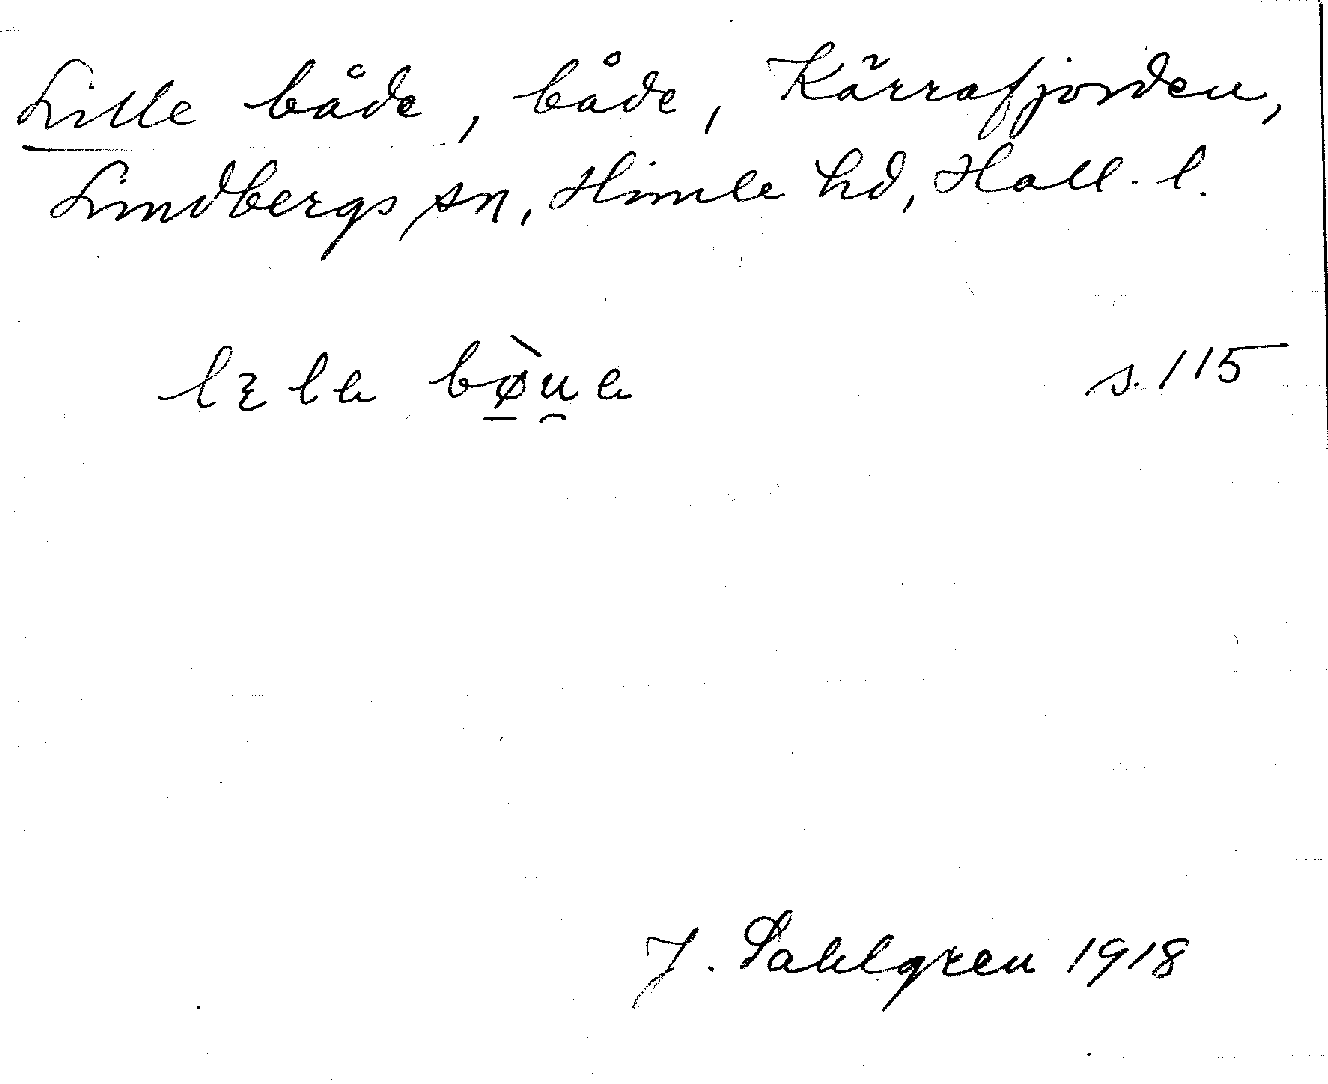 Lille både, både, Kärrafjorden,
Lindbergs sn, Himle hd, Hall. l.
s. 115
J. Sahlgren 1918